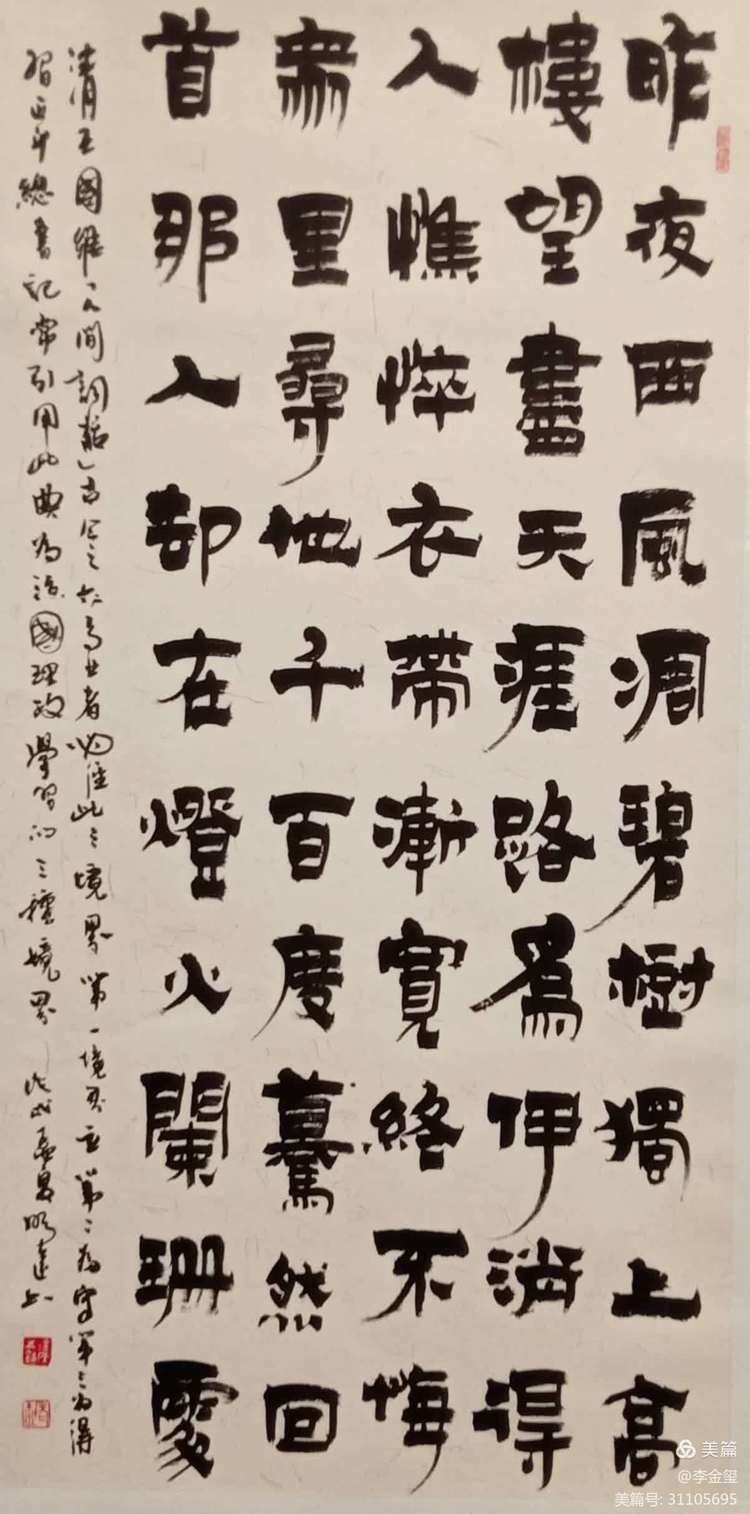 昨夜西風凋碧樹獨上高
樓望盡天涯路爲伊消得
人憔悴衣帶漸寬終不悔
衆里尋他千百度驀然回
首那人却在燈火闌珊處
清王國維《人間詞話》古今之大事業者必經此三境界第一境界立第二為守第三為得
習近平總書記常引用此典為治國理政學習的三種境界 戊戌孟夏明達書
美篇
@李金玺
美篇号: 31105695